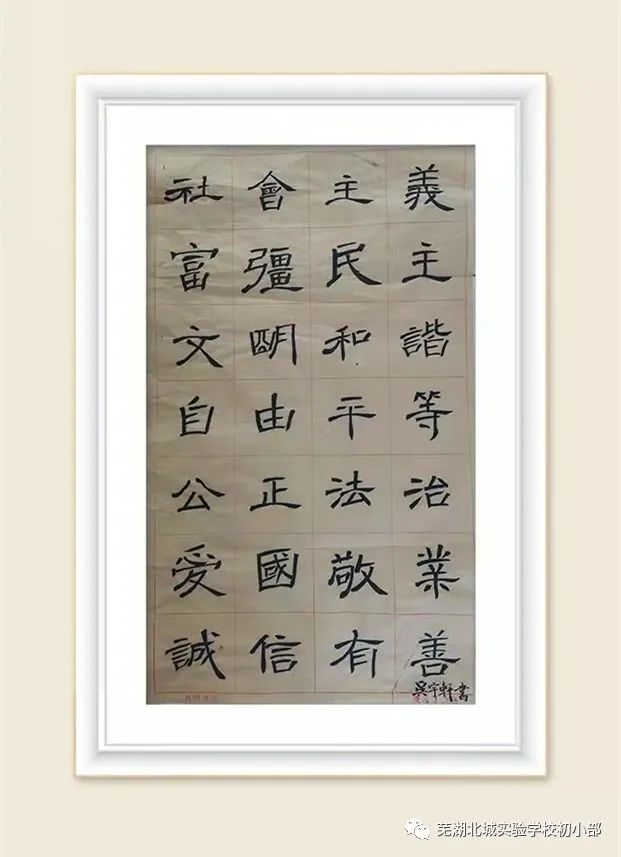 社會主義
富彊民主
文朙和諧
自由平等
公正法治
愛國敬業
誠信有善
吴宇軒書
芜湖北城实验学校初小部